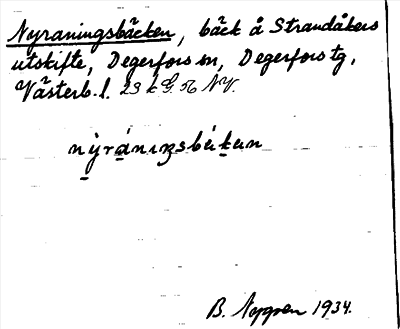 Nyraningsbäcken, bäck å Strandåkers
utskifte, Degerfors sn, Degerfors tg,
Västerb. l. 23 k G. 56 NV.
nỳrániŋsbäkən
B. Nygren 1934.